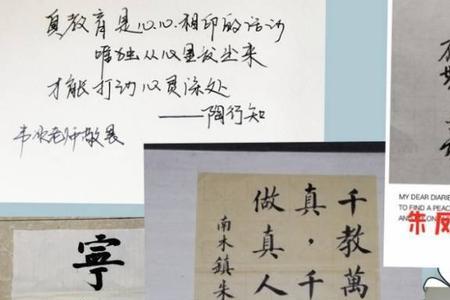 真教育是心心相印的活动
唯独从心里发出来
才能打动心灵深处
——陶行知
千教萬
真，千
做真人
南木鎮朱
寧
MY DEAR DIARIE
TO FIND A PEAC
朱凤